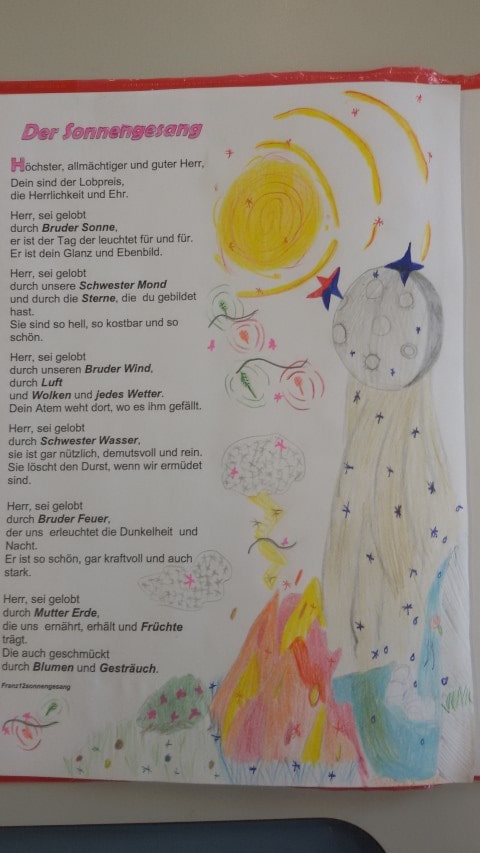 Der Sonnengesang
Höchster, allmächtiger und guter Herr,
Dein sind der Lobpreis,
die Herrlichkeit und Ehr.
Herr, sei gelobt
durch Bruder Sonne,
er ist der Tag der leuchtet für und für.
Er ist dein Glanz und Ebenbild.
Herr, sei gelobt
durch unsere Schwester Mond
und durch die Sterne, die du gebildet
hast.
Sie sind so hell, so kostbar und so
schön.
Herr, sei gelobt
durch unseren Bruder Wind,
durch Luft
und Wolken und jedes Wetter.
Dein Atem weht dort, wo es ihm gefällt.
Herr, sei gelobt
durch Schwester Wasser,
sie ist gar nützlich, demutsvoll und rein.
Sie löscht den Durst, wenn wir ermüdet
sind.
Herr, sei gelobt
durch Bruder Feuer,
der uns erleuchtet die Dunkelheit und
Nacht.
Er ist so schön, gar kraftvoll und auch
stark.
Herr, sei gelobt
durch Mutter Erde,
die uns ernährt, erhält und Früchte
trägt.
Die auch geschmückt
durch Blumen und Gesträuch.
Franz12sonnengesang